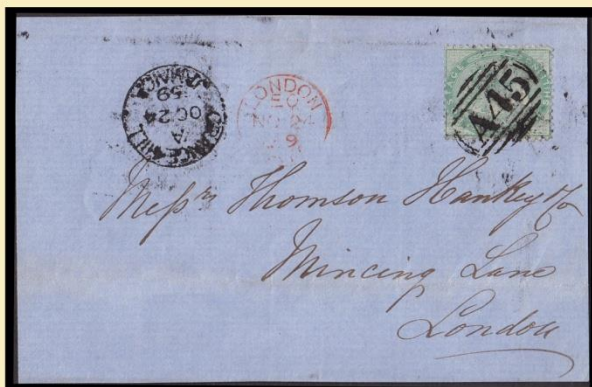 GRANGE HILL
JAMAICA
A
OC 24
59
LONDON
A45
Messrs Thomson Hankey & Co
Mincing Lane
London